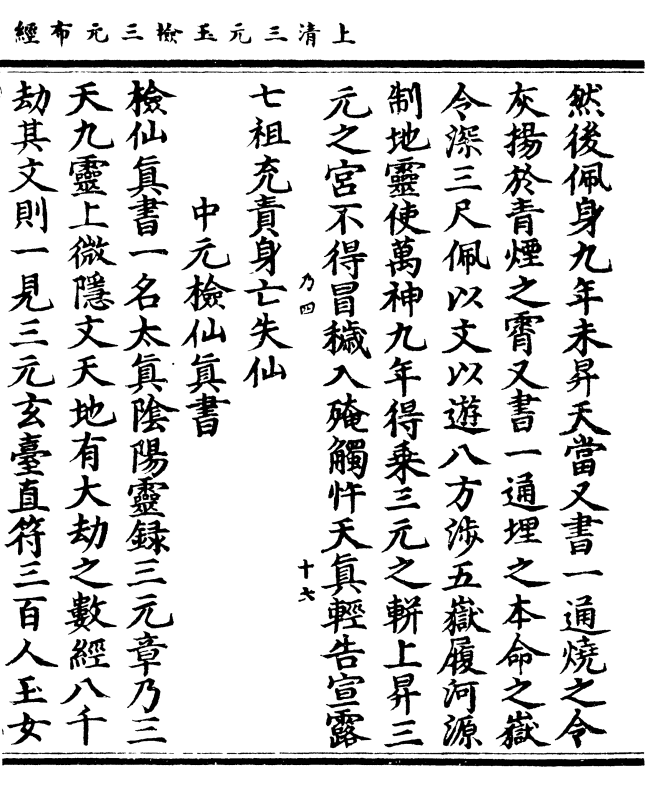 上清三元玉檢三元布經
然後佩身九年未昇天當又書一通燒之令
灰揚於青煙之霄又書一通埋之本命之嶽
令深三尺佩以文以遊八方涉五嶽履河源
制地靈使萬神九年得乘三元之軿上昇三
元之宮不得冒穢入殗觸忤天真輕告宣露
七祖充責身亡失仙
乃四
十六
中元檢仙真書
檢仙真書一名太真陰陽靈録三元章乃三
天九靈上微隱文天地有大劫之數經八千
劫其文則一見三元玄臺直符三百人玉女